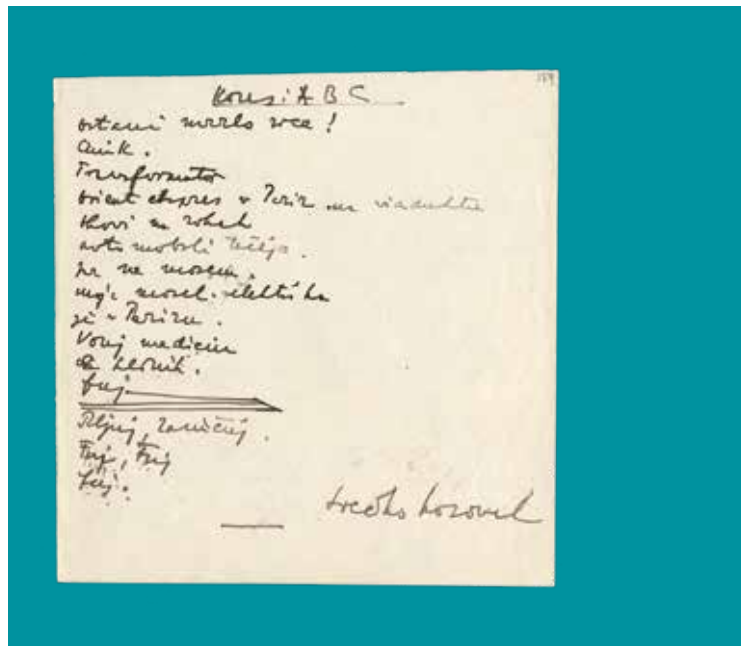 Kons: A B C
ostani mrzlo srce!
Cinik.
Transformator
orient ekspres v Pariz na viaduktu
okovi na rokah
avtomobili tečejo.
jaz ne morem.
moja misel - elektrika
je v Parizu.
Vonj medicin
fuj.
Pljuj, zaničuj.
Fuj, Fuj
fuj.
Srečko Kosovel